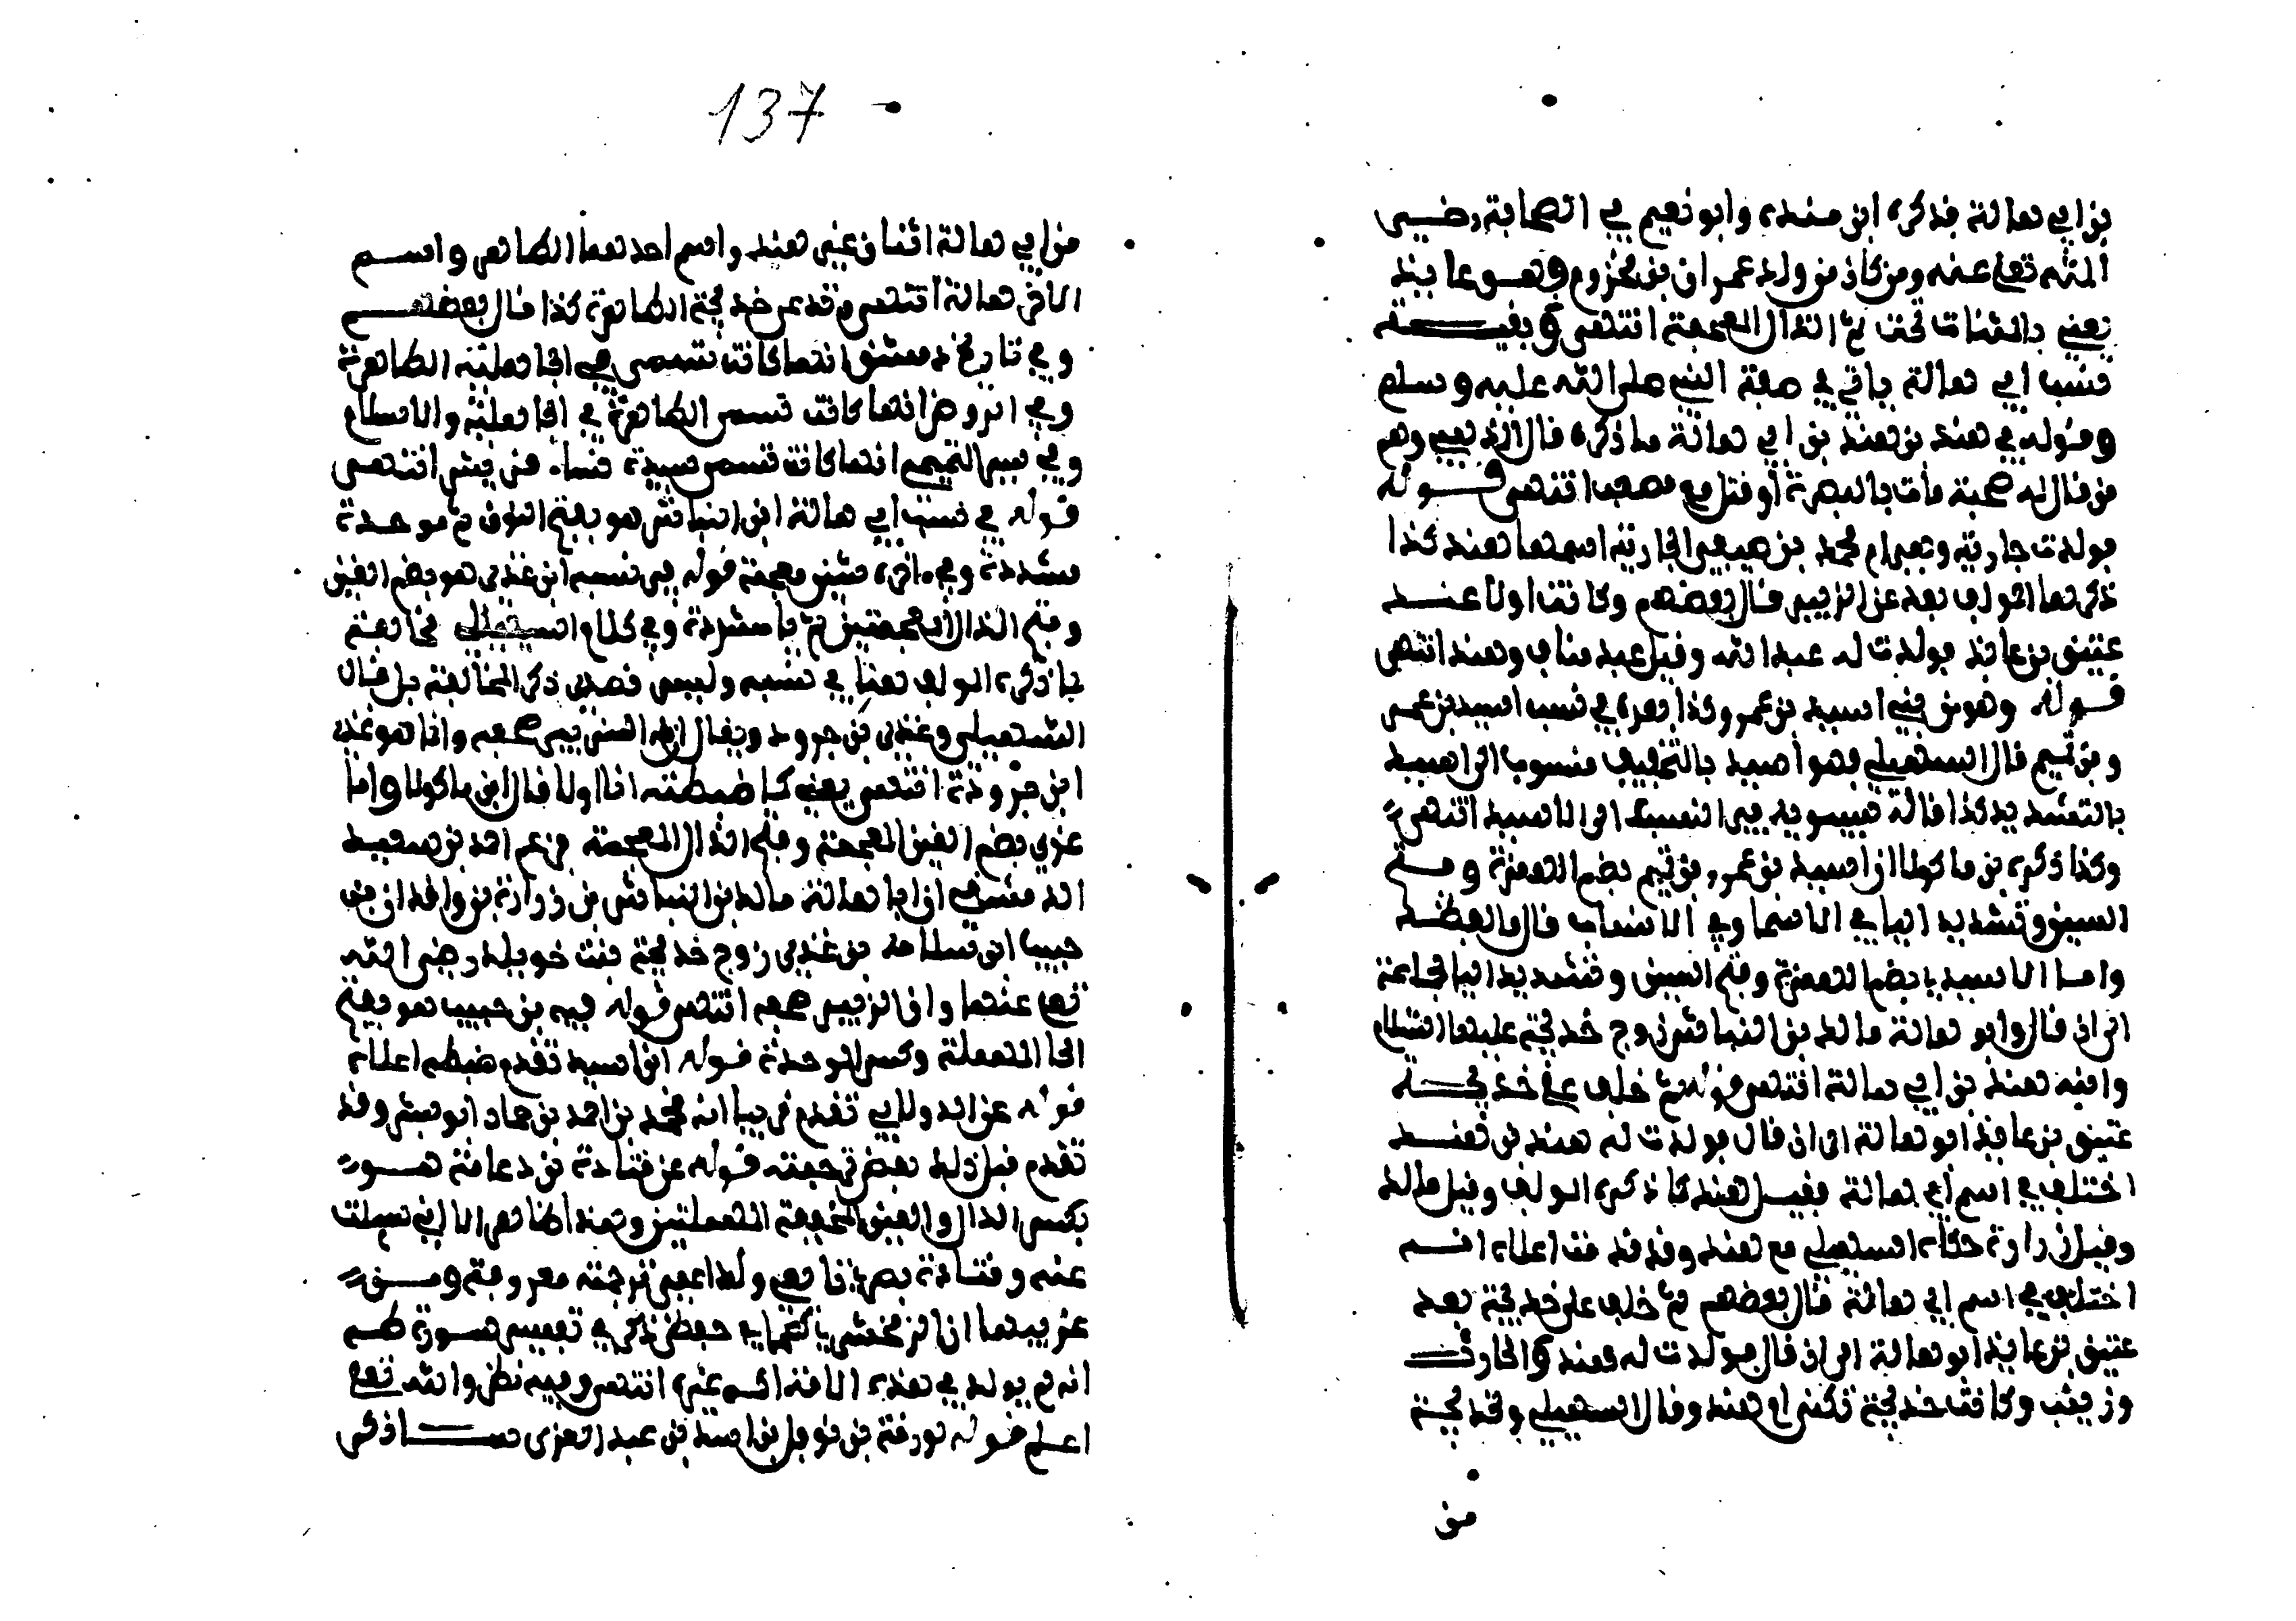 بن ابي هالة فذكره ابن منده وابو نعيم في الصحابة رضي
الله تعلى عنه ومن كان من ولد عمران بن مخزوم فهو عايذ
يعني بالمثناة تحت ثم الذال المعجمة انتهى وبقية
نسب ابي هالة ياتي في صفة النبي صلى الله عليه وسلم
وقوله في هند بن هند بن ابي هالة ما ذكره قال الذهبي وهم
من قال له صحبة مات بالبصرة او قتل مع مصعب انتهى قوله
فولدت جارية وهي ام محمد بن صيفي الجارية اسمها هند كذا
ذكرها المولف بعد عن الزبير قال بعضهم وكانت اولا عند
عتيق بن عايذ فولدت له عبد الله وقيل عبد مناف وهند انتهى
قوله وهو من بني اسيد بن عمرو كذا بعده في نسب اسيد بن عمرو
بن تميم قال السهيلي فهو اسيد بالتخفيف منسوب الى اسيد
بالتشديد كذا قاله سيبويه في النسب الى الاسيد انتهى
وكذا ذكره بن ماكولا ان اسيد بن عمرو بن تميم بضم الهمزة وفتح
السين وتشديد اليا في الاسما وفي الانساب قال ما لفظه
واما الاسيد يا بضم الهمزة وفتح السين وتشديد اليا فجماعة
الى ان قال وابو هالة مالك بن النباش زوج خديجة عليها السلام
وابنه هند بن ابي هالة انتهى قوله ثم خلف على خديجة
عتيق بن عايذ ابو هالة الى ان قال فولدت له هند بن هند
اختلف في اسم ابي هالة فقيل هند كما ذكره المولف وقيل مالك
وقيل زرارة حكاه السهيلي مع هند وقد قدمت اعلاه انه
اختلف في اسم ابي هالة قال بعضهم ثم خلف على خديجة بعد
عتيق بن عايذ ابو هالة الى ان قال فولدت له هند والحارث
وزينب وكانت خديجة تكنى ام هند وقال السهيلي ولخديجة
من
137
من ابي هالة اثنان غير هند واسم احدهما الطاهر واسم
الاخر هالة انتهى وتدعى خديجة الطاهرة كذا قال بعضهم
وفي تاريخ دمشق انها كانت تسمى في الجاهلية الطاهرة
وفي الروض انها كانت تسمى الطاهرة في الجاهلية والاسلام
وفي سير التيمي انها كانت تسمى سيدة نساء قريش انتهى
قوله في نسب ابي هالة ابن النباش هو بفتح النون ثم موحدة
مشددة وفي اخره شين معجمة قوله في نسبه ابن غذي هو بضم الغين
وفتح الذال المعجمتين ثم يا مشددة وفي كلام السهيلي مخالفة
لما ذكره المولف هنا في نسبه وليس قصدي ذكر المخالفة بل قال
السهيلي وعدي بن جروة ويقال ان الزبير صحفه وانما هو غذي
ابن جروة انتهى يعني كما ضبطته انا اولا قال ابن ماكولا واما
غذي بضم الغين المعجمة وفتح الذال المعجمة فزعم احمد بن سعيد
الدمشقي ان ابا هالة مالك بن النباش بن زرارة بن واقدان بن
حبيب ابن سلامة بن غذي زوج خديجة بنت خويلد رضي الله
تعلى عنها وان الزبير صحفه انتهى قوله فيه بن حبيب هو بفتح
الحا المهملة وكسر الموحدة قوله ابن اسيد تقدم ضبطه اعلاه
قوله عن الدولابي تقدم قريبا انه محمد بن احمد بن حماد ابو بشر وقد
تقدم قبل ذلك بعض ترجمته قوله عن قتادة بن دعامة هو
بكسر الدال والعين المخففة المهملتين وهند الطاهر الا ان سيلت
عنه وقتادة بصري تابعي ولد اعمى ترجمته معروفة ومن
غريبها ان الزمخشري بكمال حفظه ذكر في تفسير سورة طسم
انه لم يولد في هذه الامة اكمه غيره انتهى وفيه نظر والله تعلى
اعلم قوله لورقة بن نوفل بن اسد بن عبد العزى سـاذكر